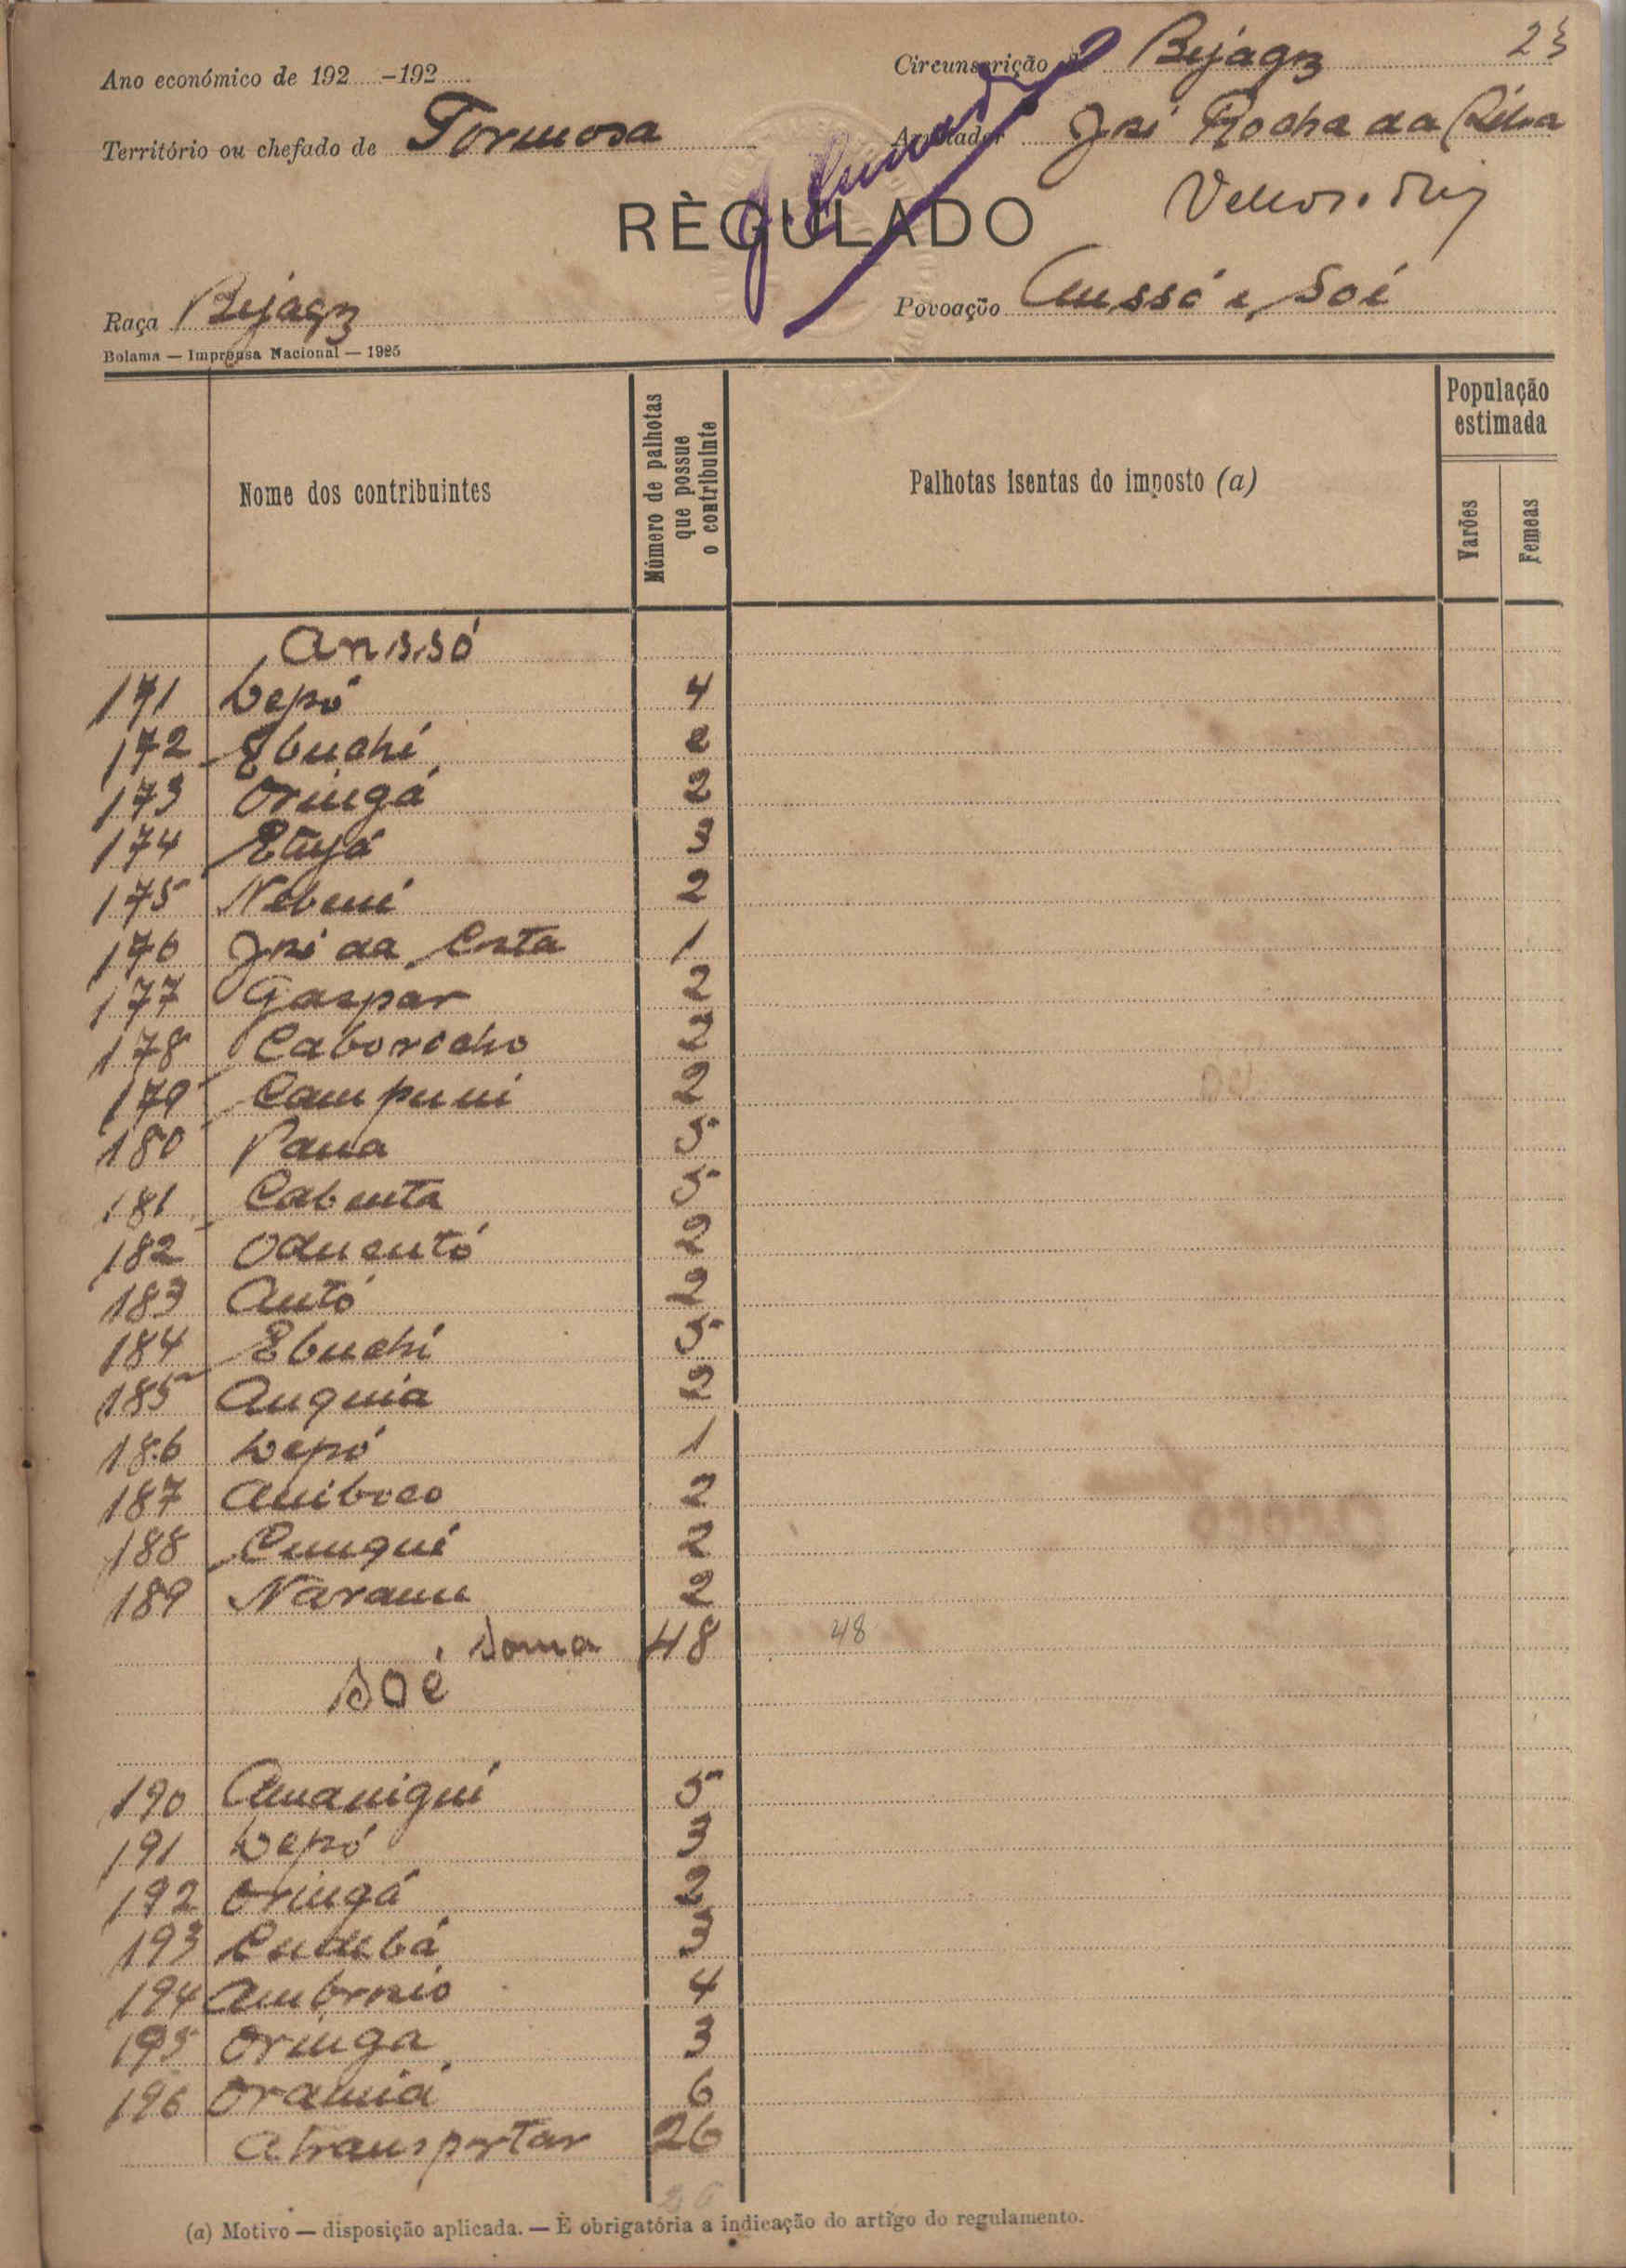 23
Ano económico de 192 -192
Circunscrição de Bijagoz
Território ou chefado de Formosa
Arrolador José Rocha da Silva
RÈGULADO
Raça Bijagoz
Povoação Anssó e Soé
Bolama — Imprensa Nacional — 1925
Nome dos contribuintes
Número de palhotas que possue o contribuinte
Palhotas isentas do imposto (a)
População estimada
Varões
Femeas
Anssó
171 Depó 4
172 Ebuchi 2
173 Oringá 2
174 Etuyá 3
175 Nebeni 2
176 José da Costa 1
177 Gaspar 2
178 Caborocho 2
179 Campuni 2
180 Pana 5
181 Cabenta 5
182 Oduentó 2
183 Antó 2
184 Ebuchi 5
185 Anquia 2
186 Depó 1
187 Aniboco 2
188 Cunqui 2
189 Naranu 2
Soma 48 48
Soé
190 Amanigui 5
191 Depó 3
192 Oringá 2
193 Cudebá 3
194 Ambrosio 4
195 Oringa 3
196 Oramiá 6
A transportar 26
26
(a) Motivo — disposição aplicada. — È obrigatória a indicação do artigo do regulamento.